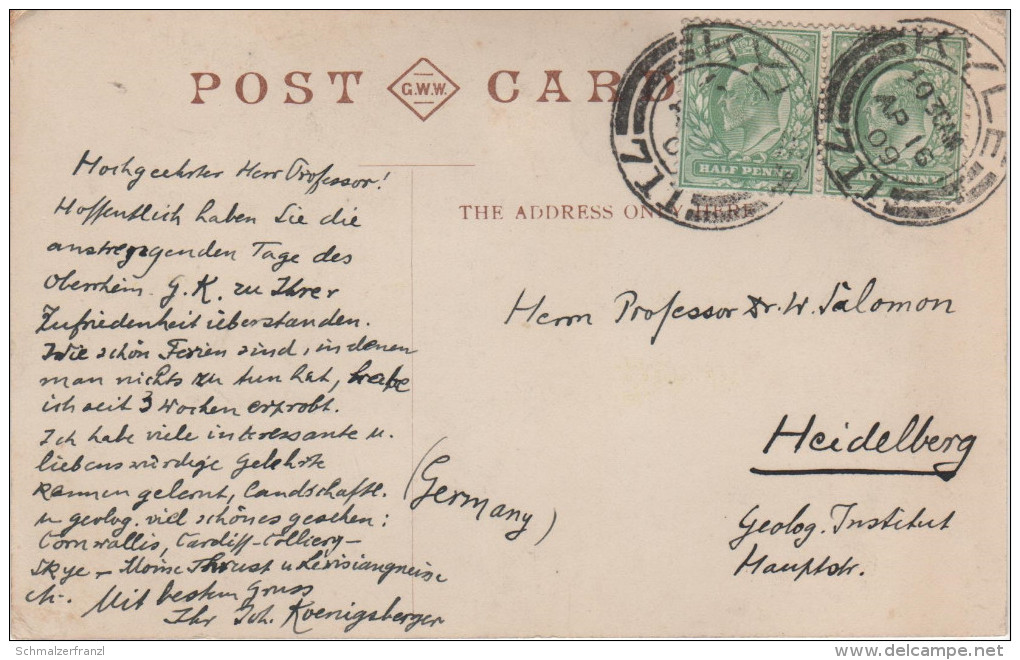 POST G.W.W. CARD
THE ADDRESS ONLY HERE
HALF PENNY
PENNY
KYLE
10 30 AM
AP 16
09
Hochgeehrter Herr Professor!
Hoffentlich haben Sie die
anstrengenden Tage des
Oberrhein. G. K. zu Ihrer
Zufriedenheit überstanden.
Wie schön Ferien sind, in denen
man nichts zu tun hat, habe
ich seit 3 Wochen erprobt.
Ich habe viele interessante u.
liebenswürdige Gelehrte
kennen gelernt, landschaftl.
u geolog. viel schönes gesehen:
Cornwallis, Cardiff-Colliery-
Skye - Moine Thrust u Levisiangneise
etc. Mit bestem Gruss
Ihr Joh. Koenigsberger
Herrn Professor Dr. W. Salomon
Heidelberg
(Germany)
Geolog. Institut
Hauptstr.
Schmalzerfranzl
delcampe.net